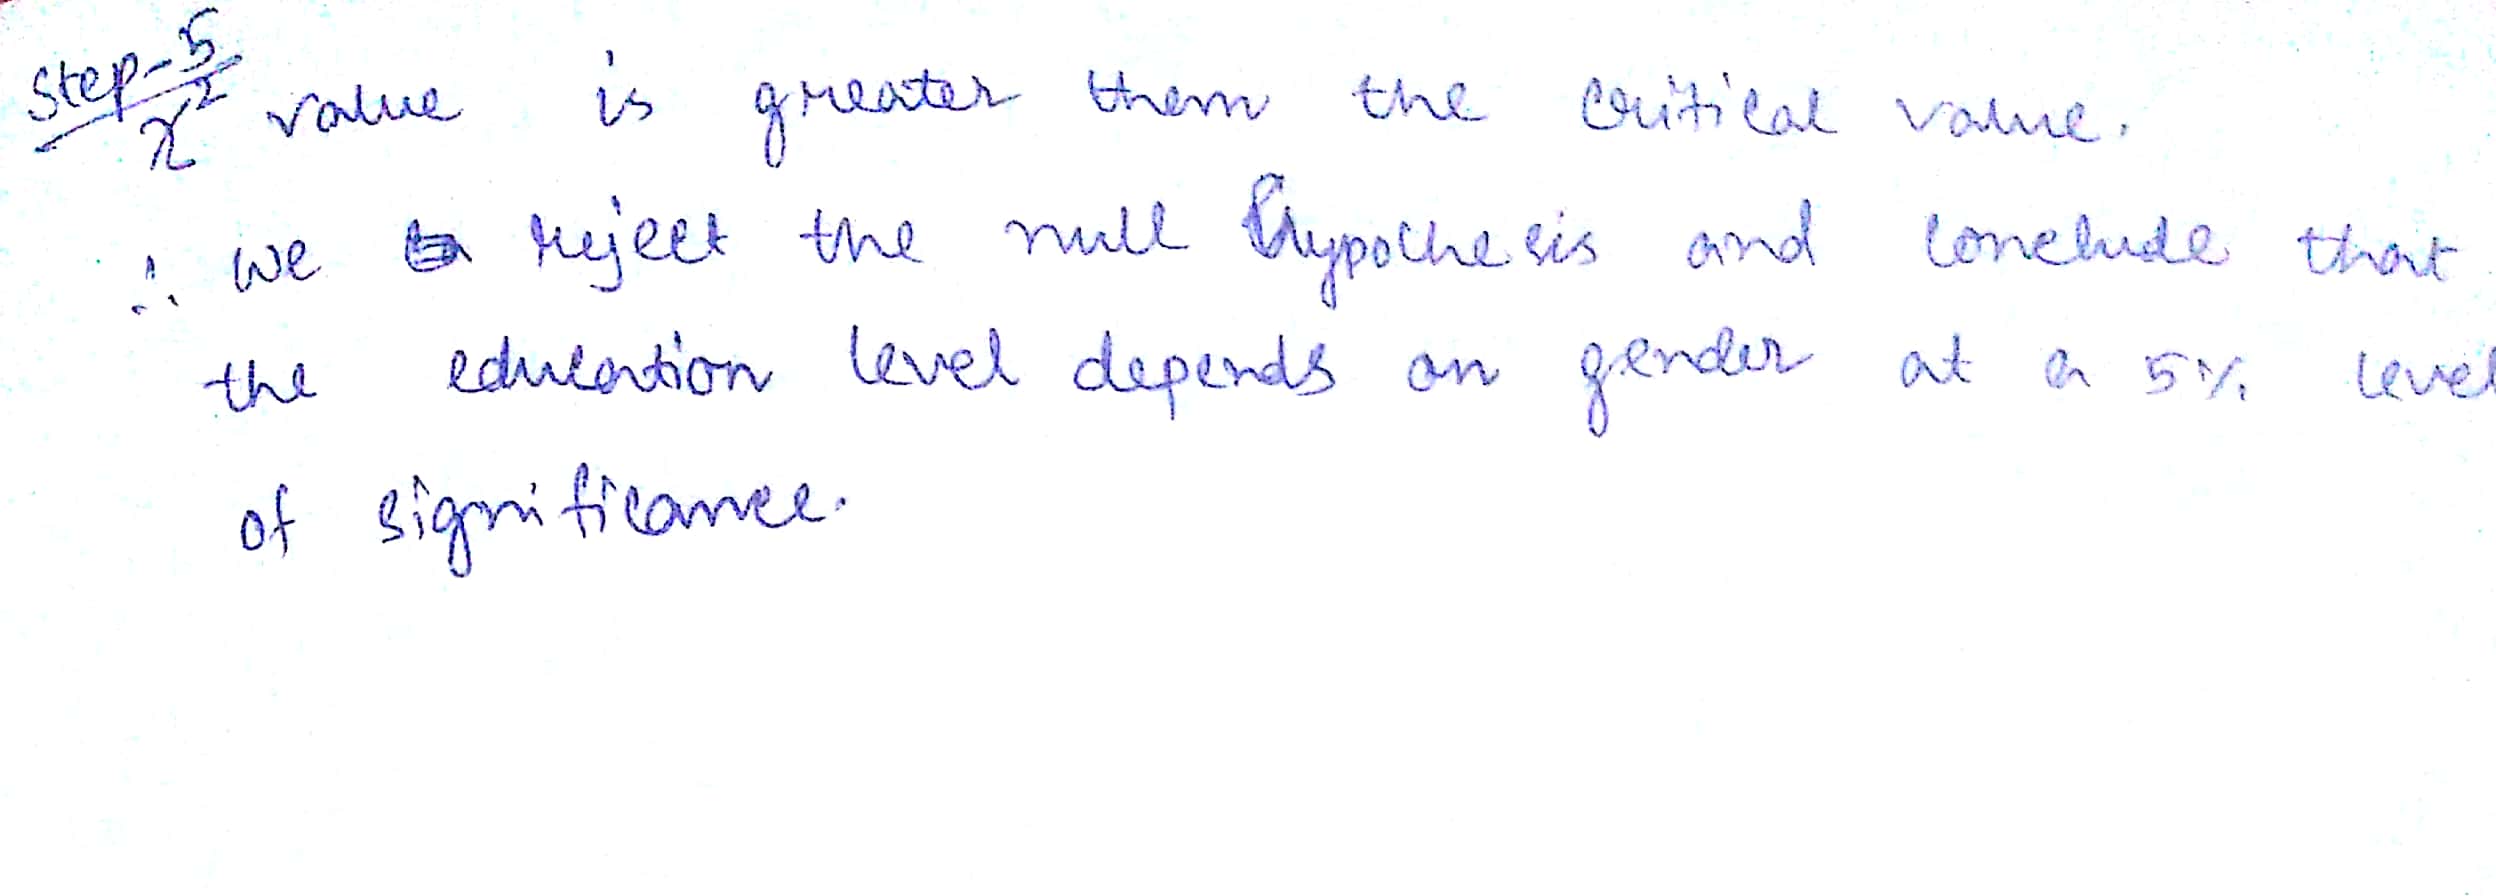 Step-5
χ² value is greater than the critical value.
∴ we reject the null hypothesis and conclude that
the education level depends on gender at a 5% level
of significance.